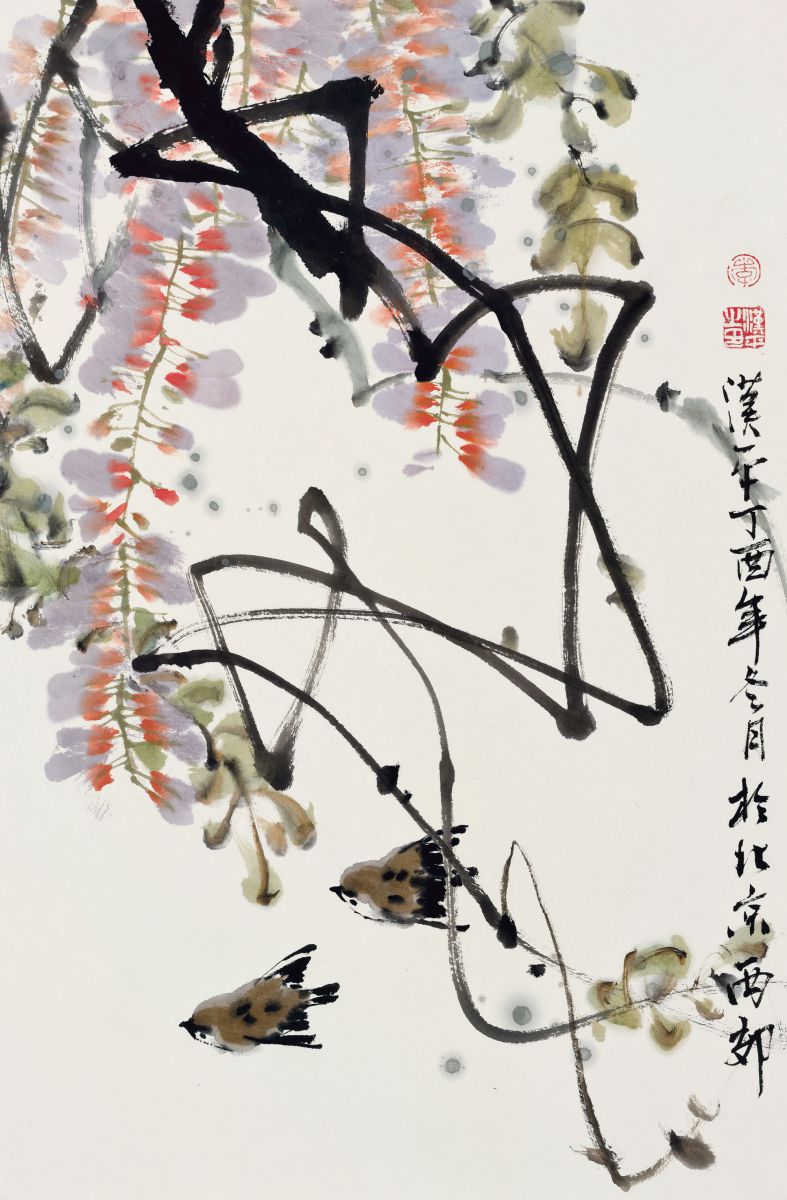 漢平丁酉年冬月於北京西郊